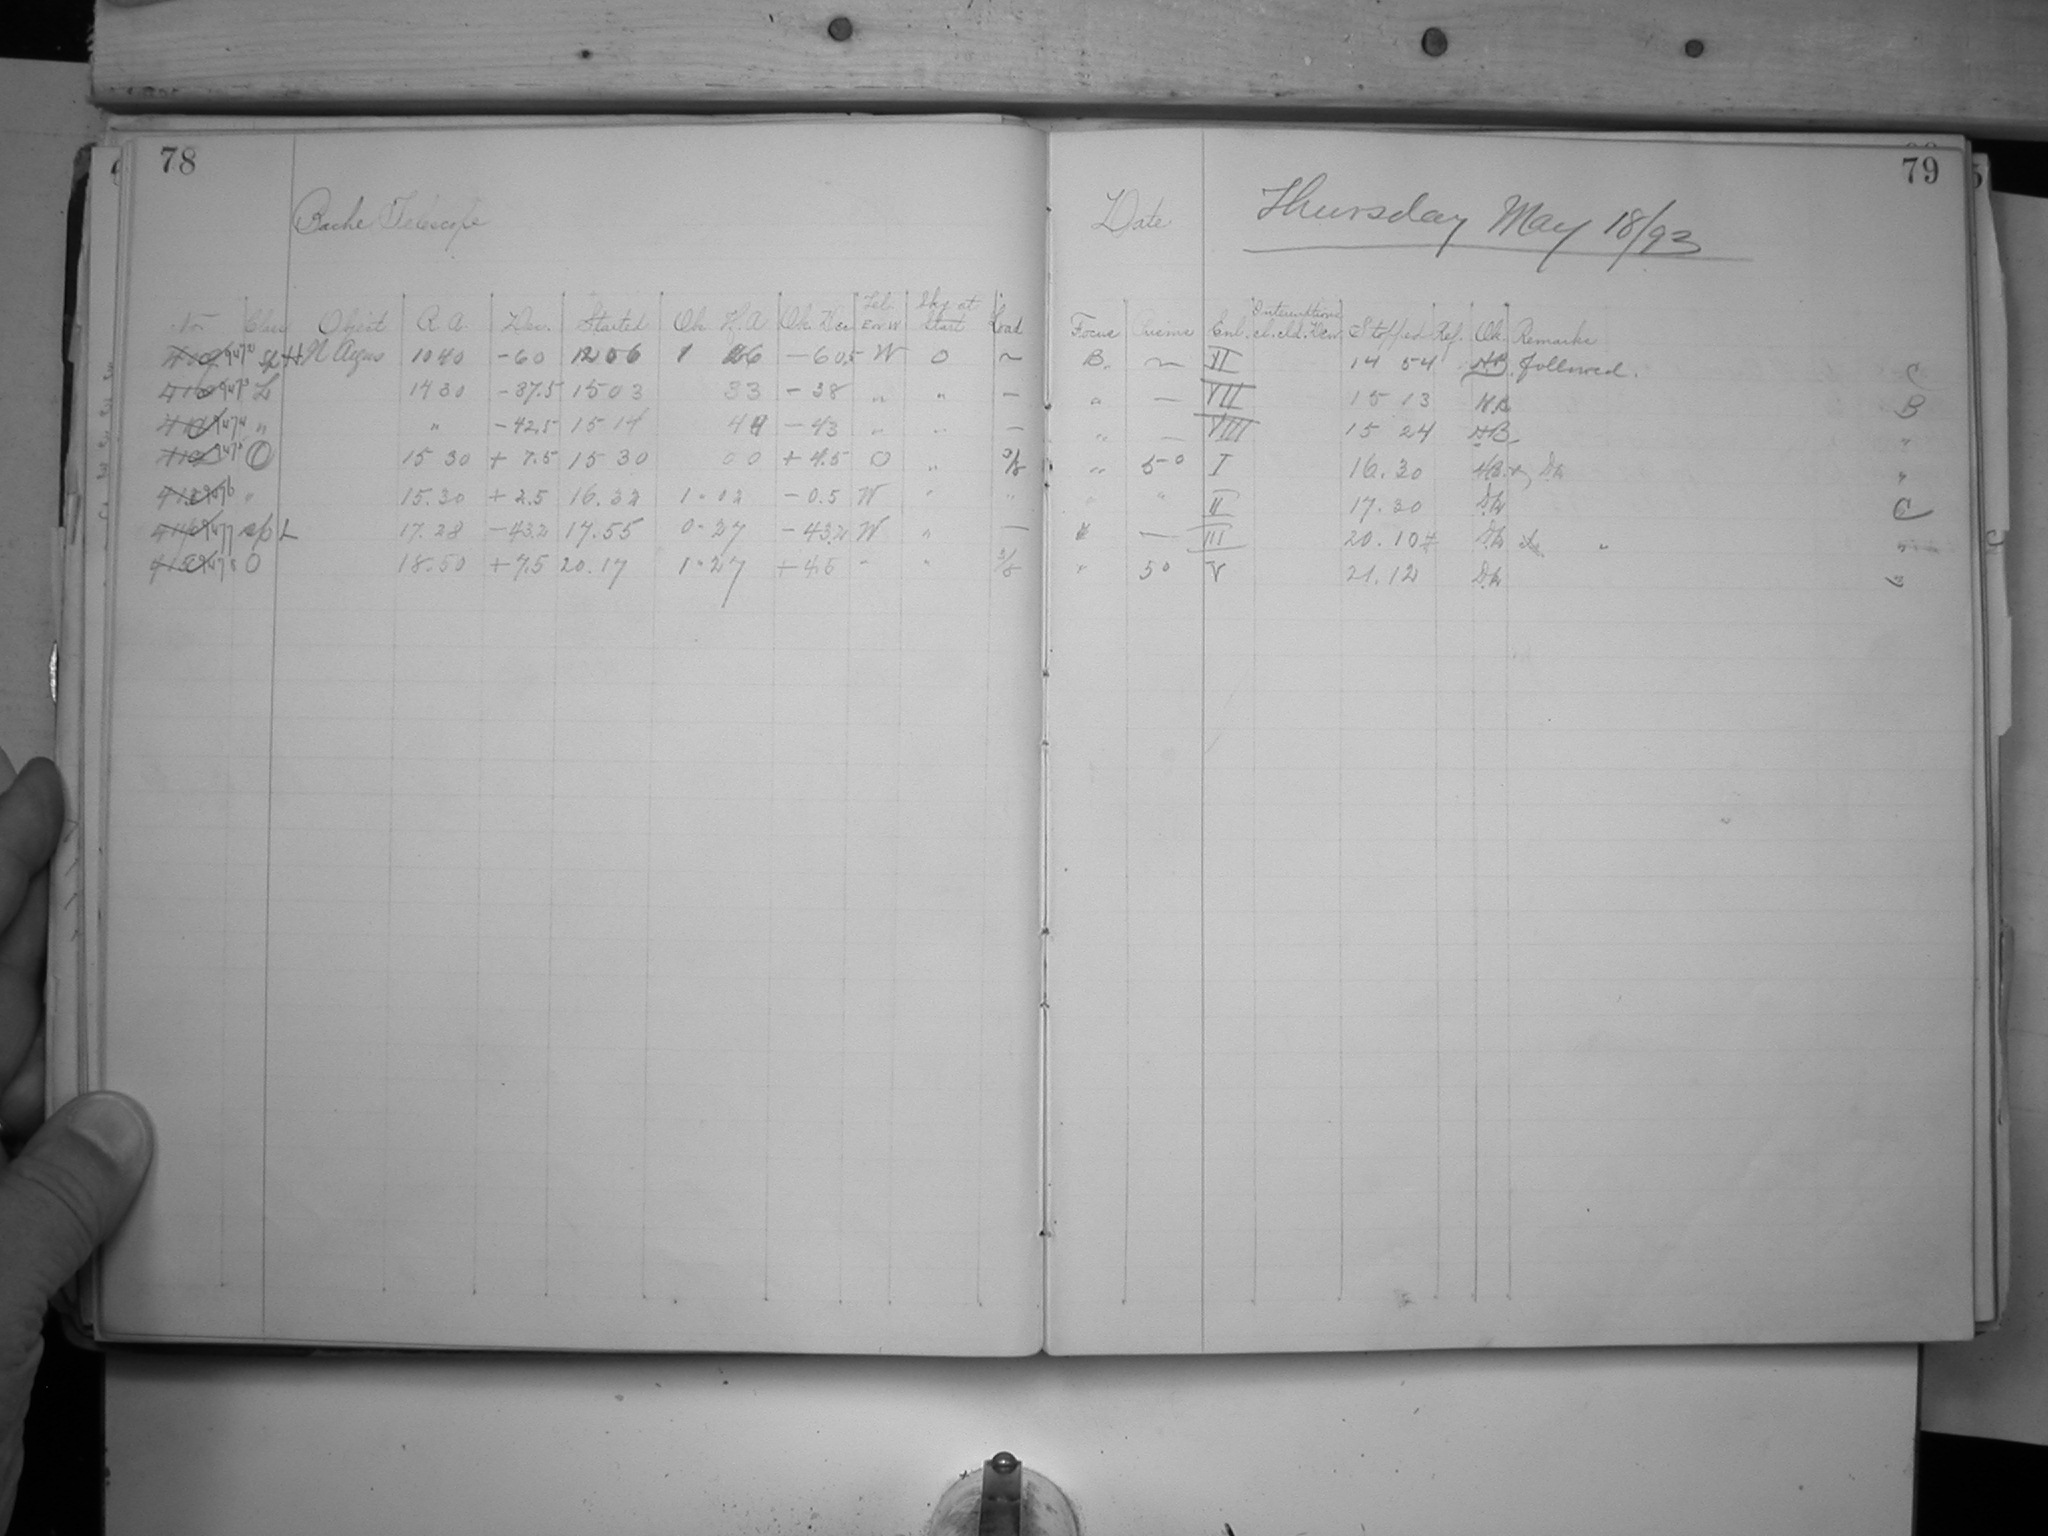 78
Bache Telescope
No. Class Object R.A. Dec. Started Ob. H.A Ob. Dec Tel. E or W Sky at Start Load
9472 Sp H N Argus 10 40 -60 12 06 1 26 -60.5 W 0 ~
9473 L 14 30 -37.5 15 03 33 -38 " " —
9474 " " -42.5 15 14 44 -43 " " —
9475 O 15 30 +7.5 15 30 00 +4.5 O "
9476 " 15.30 +2.5 16.32 1.02 -0.5 W " "
9477 sp L 17.28 -43.2 17.55 0.27 -43.2 W " —
9478 O 18.50 +7.5 20.17 1.27 +4.5 " "
79
Date Thursday May 18/93
Focus Prisms Enl. Interruptions cl. cld. Dew Stopped Ref. Ob. Remarks
B. ~ II 14 54 HB. followed. C
" — VII 15 13 HB B
" — VIII 15 24 HB "
" 50 I 16.30 HB "
" " II 17.20 C
— III 20.10 "
" 50 V 21.12 "